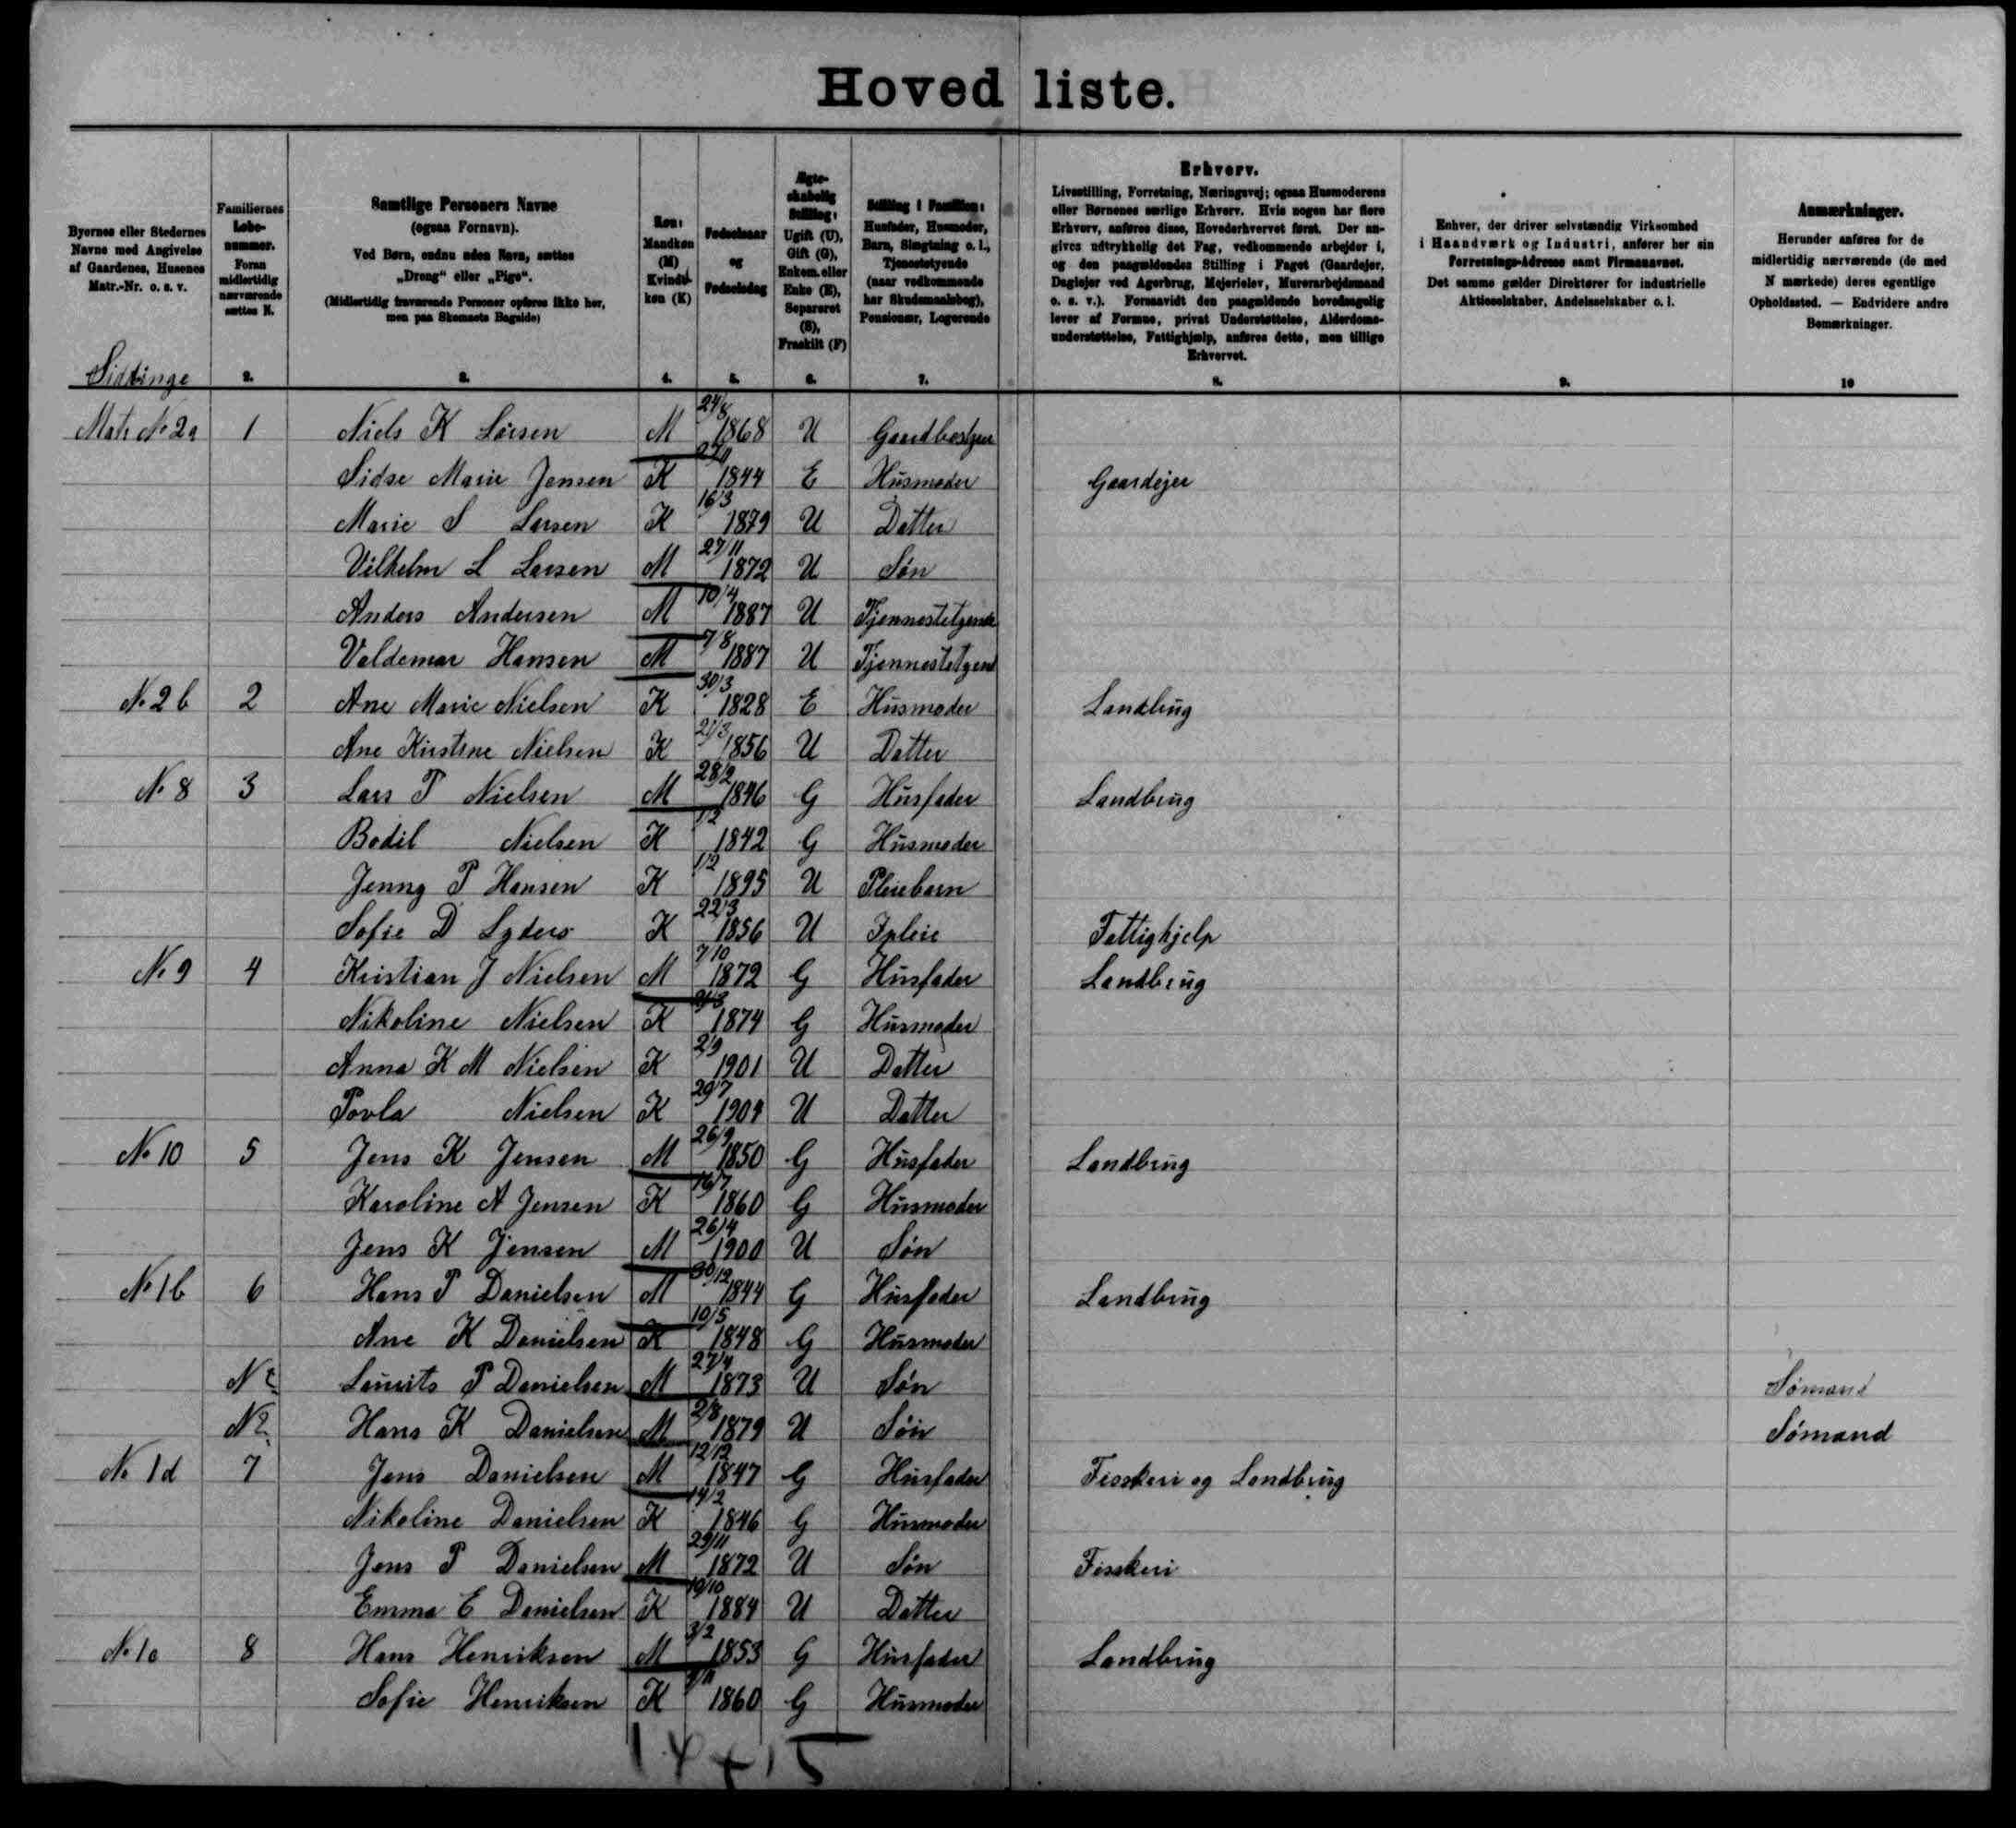 Hoved liste.
Byernes eller Stedernes Navne med Angivelse af Gaardenes, Husenes Matr.-Nr. o. s. v.
Familiernes Løbenummer. Foran midlertidig nærværende sættes N.
Samtlige Personers Navne (ogsaa Fornavn). Ved Børn, endnu uden Navn, sættes „Dreng“ eller „Pige“. (Midlertidig fraværende Personer opføres ikke her, men paa Skemaets Bagside)
Køn: Mandkøn (M) Kvindekøn (K)
Fødselsaar og Fødselsdag
Ægteskabelig Stilling: Ugift (U), Gift (G), Enkem. eller Enke (E), Separeret (S), Fraskilt (F)
Stilling i Familien: Husfader, Husmoder, Barn, Slægtning o. l., Tjenestetyende (naar vedkommende har Skudsmaalsbog), Pensionær, Logerende
Erhverv.
Livsstilling, Forretning, Næringsvej; ogsaa Husmoderens eller Børnenes særlige Erhverv. Hvis nogen har flere Erhverv, anføres disse, Hovederhvervet først. Der angives udtrykkelig det Fag, vedkommende arbejder i, og den paagældendes Stilling i Faget (Gaardejer, Daglejer ved Agerbrug, Mejerielev, Murerarbejdsmand o. s. v.). Forsaavidt den paagældende hovedsagelig lever af Formue, privat Understøttelse, Alderdomsunderstøttelse, Fattighjælp, anføres dette, men tillige Erhvervet.
Enhver, der driver selvstændig Virksomhed i Haandværk og Industri, anfører her sin Forretnings-Adresse samt Firmanavnet. Det samme gælder Direktører for industrielle Aktieselskaber, Andelsselskaber o. l.
Anmærkninger.
Herunder anføres for de midlertidig nærværende (de med N mærkede) deres egentlige Opholdssted. — Endvidere andre Bemærkninger.
Siddinge 2. 3. 4. 5. 6. 7. 8. 9. 10
Matr No 2a 1 Niels K Larsen M 24/8 1868 U Gaardbestyrer
Sidse Marie Jensen K 1844 E Husmoder Gaardejer
Marie S Larsen K 16/3 1879 U Datter
Vilhelm L Larsen M 27/11 1872 U Søn
Anders Andersen M 10/4 1887 U Tjennestetyende
Valdemar Hansen M 7/8 1887 U Tjennestetyend
No 2b 2 Ane Marie Nielsen K 30/3 1828 E Husmoder Landbrug
Ane Kirstine Nielsen K 21/3 1856 U Datter
No 8 3 Lars P Nielsen M 28/2 1846 G Husfader Landbrug
Bodil Nielsen K 1/2 1842 G Husmoder
Jenny P Hansen K 1/2 1895 U Pleiebarn
Sofie D Lyders K 22/3 1856 U Ipleie Fattighjelp
No 9 4 Kristian J Nielsen M 7/10 1872 G Husfader Landbrug
Nikoline Nielsen K 1874 G Husmoder
Anna K M Nielsen K 2/9 1901 U Datter
Povla Nielsen K 29/7 1904 U Datter
No 10 5 Jens K Jensen M 26/9 1850 G Husfader Landbrug
Karoline A Jensen K 16/7 1860 G Husmoder
Jens K Jensen M 26/4 1900 U Søn
No 1b 6 Hans P Danielsen M 30/12 1844 G Husfader Landbrug
Ane K Danielsen K 10/5 1848 G Husmoder
N Laurits P Danielsen M 27/4 1873 U Søn Sømand
N Hans K Danielsen M 2/8 1879 U Søn Sømand
No 1d 7 Jens Danielsen M 12/12 1847 G Husfader Fisskeri og Landbrug
Nikoline Danielsen K 14/2 1846 G Husmoder
Jens P Danielsen M 29/11 1872 U Søn Fisskeri
Emma E Danielsen K 10/10 1884 U Datter
No 1c 8 Hans Henriksen M 3/2 1853 G Husfader Landbrug
Sofie Henriksen K 1860 G Husmoder
14 + 15